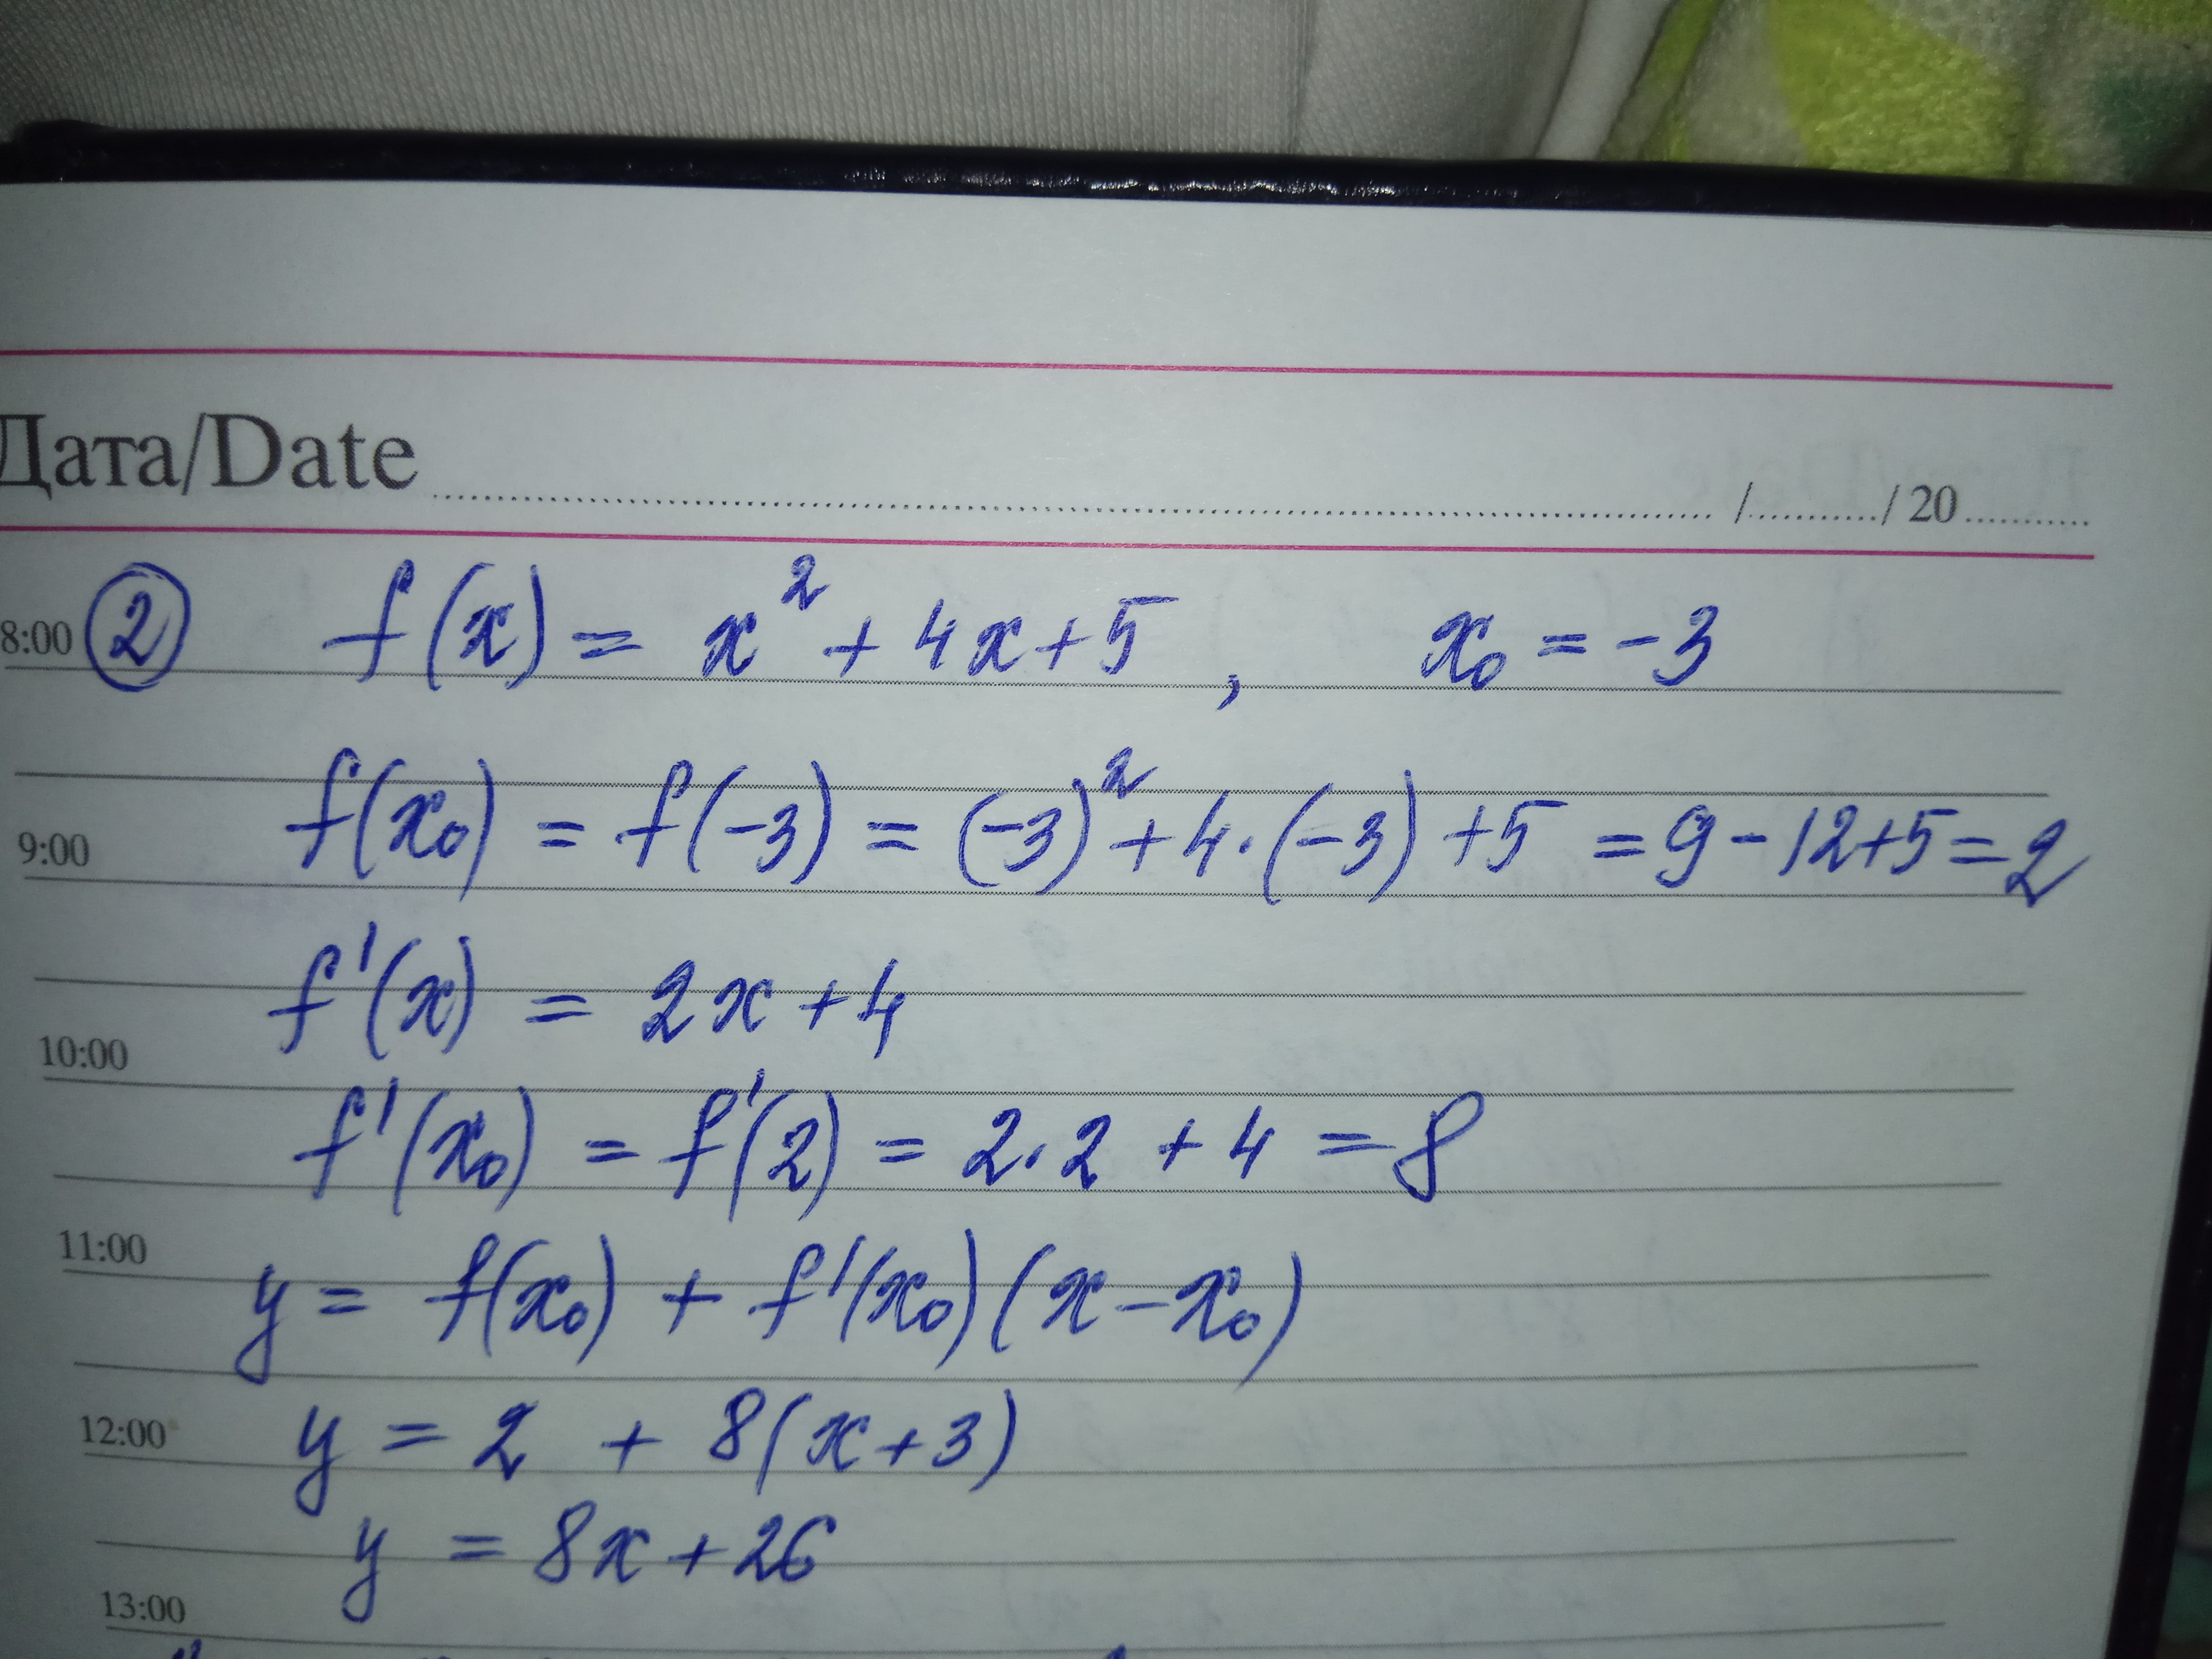 Дата/Date ........ / ........ / 20 ........
8:00 ② f(x) = x² + 4x + 5 , x₀ = -3
9:00 f(x₀) = f(-3) = (-3)² + 4·(-3) + 5 = 9 - 12 + 5 = 2
f'(x) = 2x + 4
10:00
f'(x₀) = f'(2) = 2·2 + 4 = 8
11:00
y = f(x₀) + f'(x₀)(x - x₀)
12:00 y = 2 + 8(x + 3)
y = 8x + 26
13:00